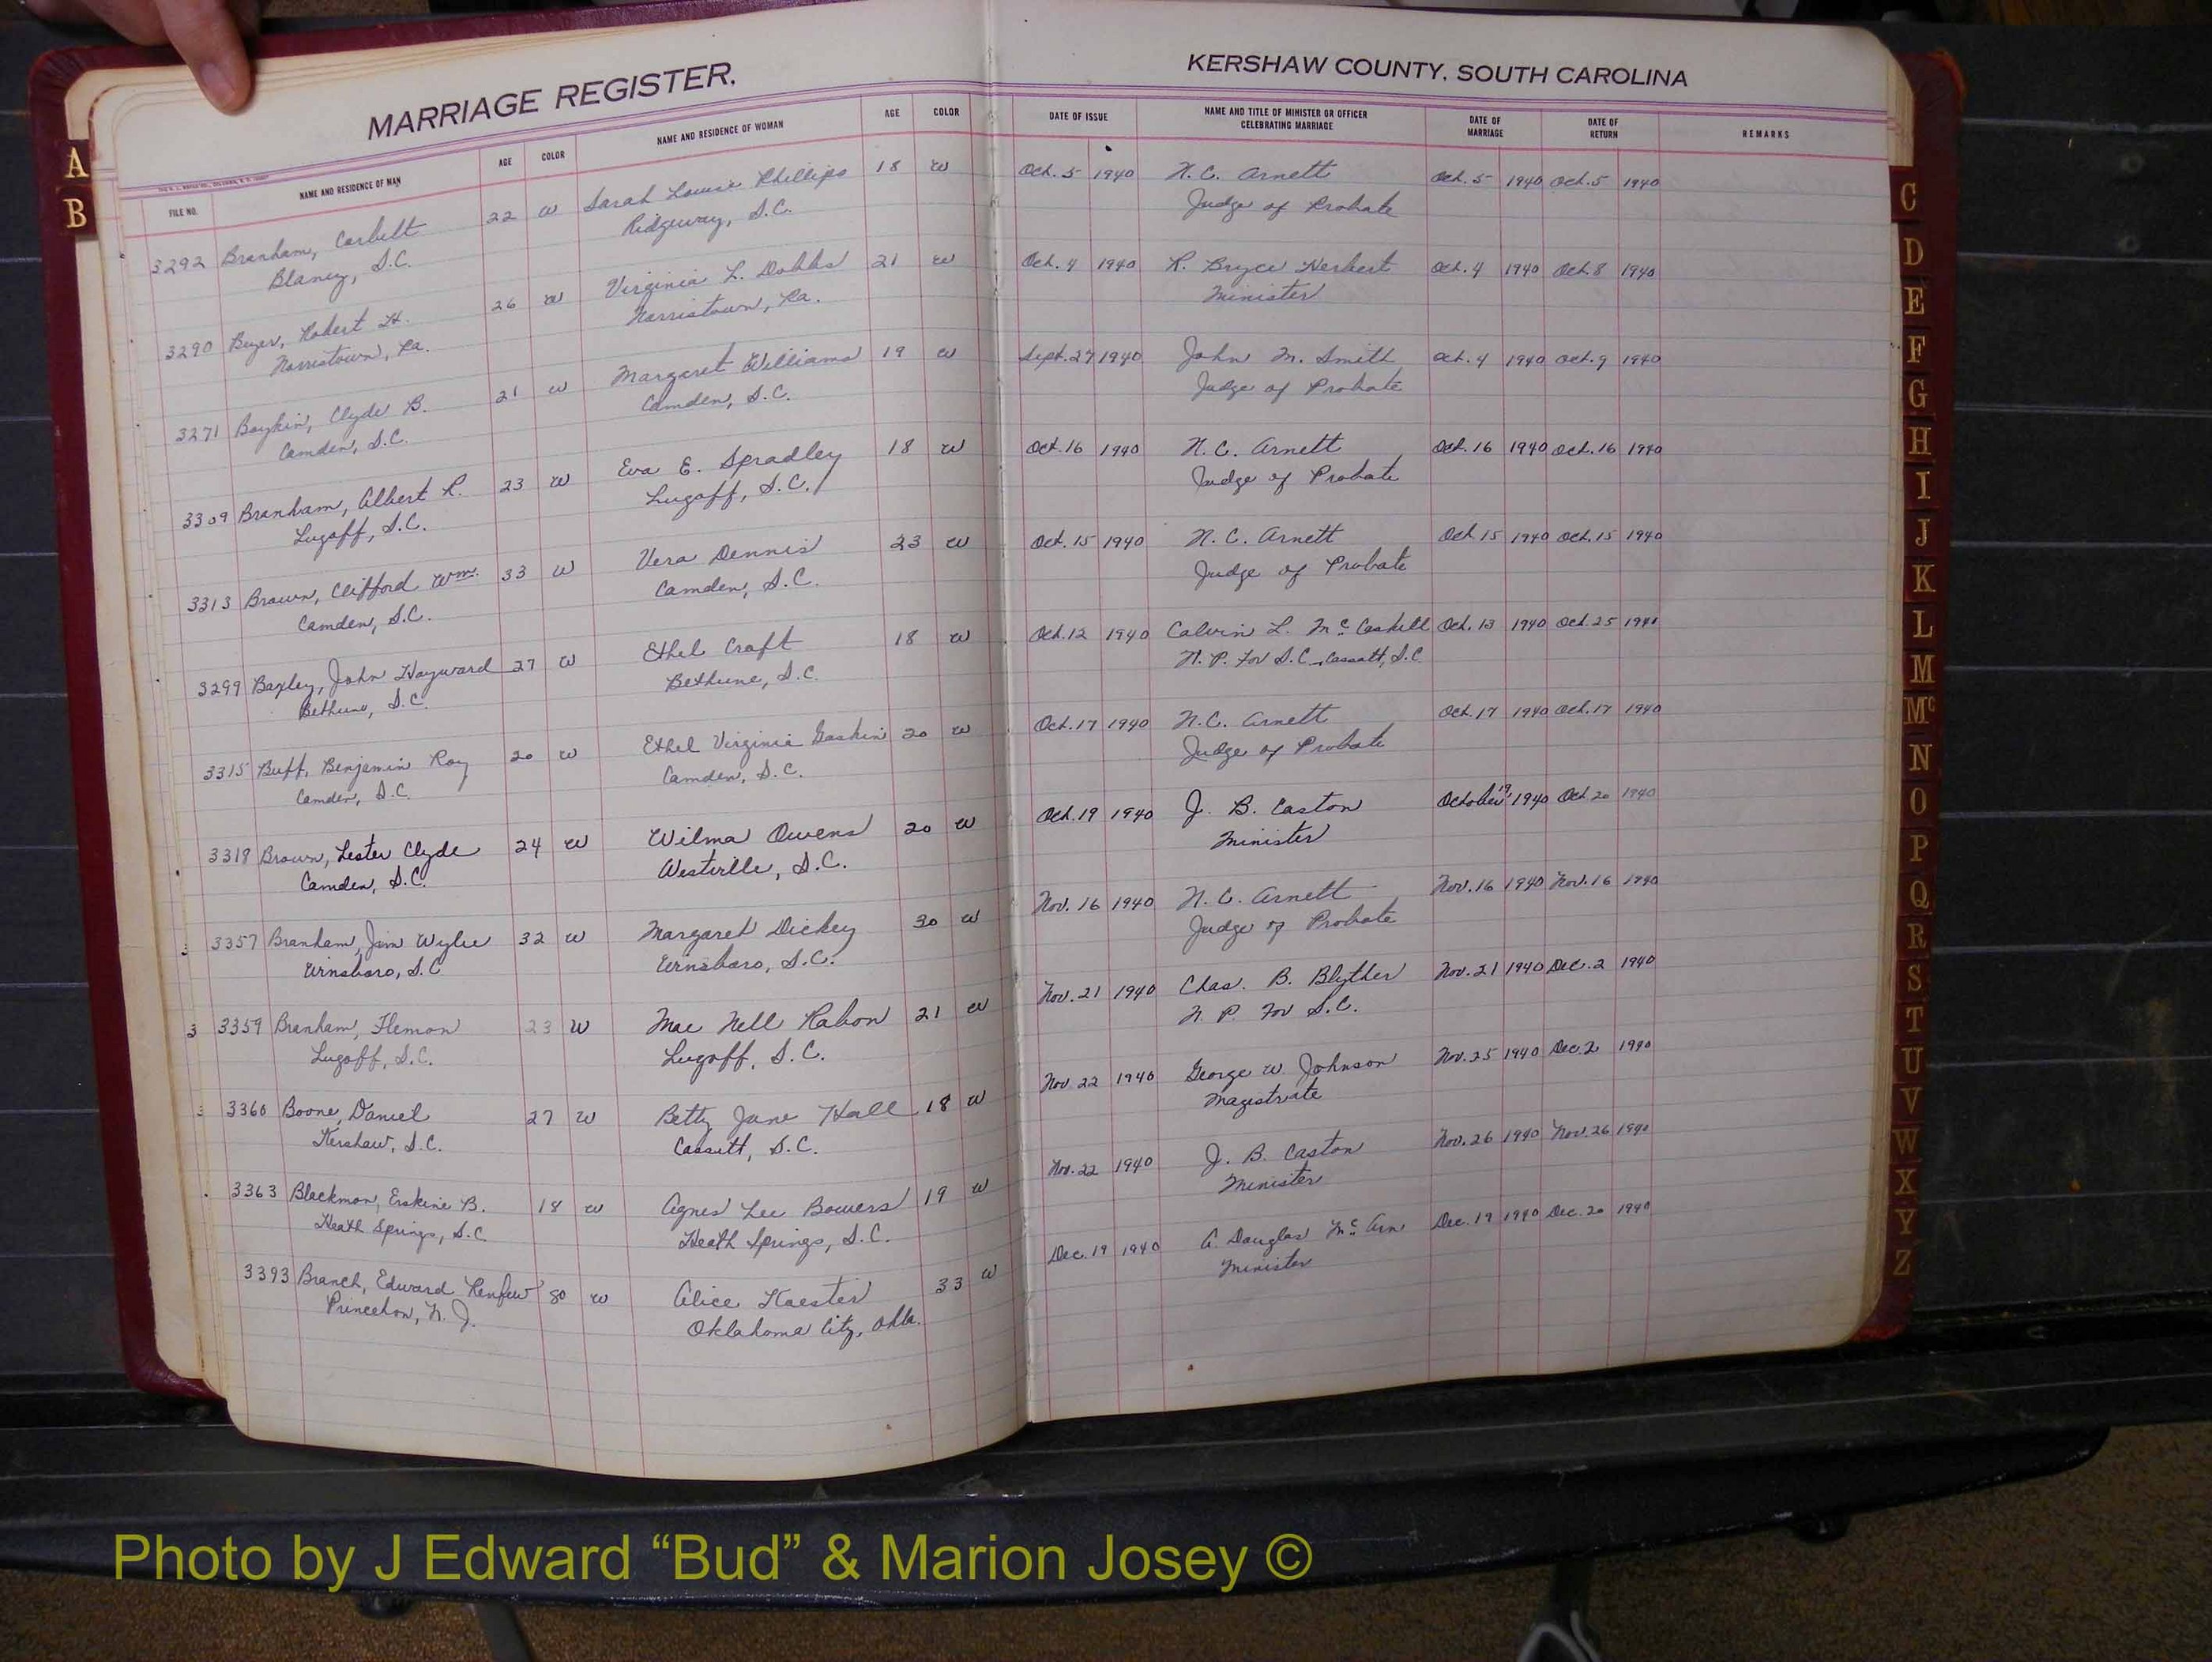 MARRIAGE REGISTER.
KERSHAW COUNTY, SOUTH CAROLINA
FILE NO. NAME AND RESIDENCE OF MAN AGE COLOR NAME AND RESIDENCE OF WOMAN AGE COLOR DATE OF ISSUE NAME AND TITLE OF MINISTER OR OFFICER CELEBRATING MARRIAGE DATE OF MARRIAGE DATE OF RETURN REMARKS
3292 Branham, Corbett 22 W Sarah Louise Phillips 18 W Oct. 5 1940 N. C. Arnett Oct. 5 1940 Oct. 5 1940
Blaney, S.C. Ridgeway, S.C. Judge of Probate
3290 Robert H. 26 W Virginia L. Dobbs 21 W Oct. 4 1940 R. Bryce Herbert Oct. 4 1940 Oct. 8 1940
Norristown, Pa. Norristown, Pa. Minister
3271 Boykin, Clyde B. 21 W Margaret Williams 19 W Sept. 27 1940 John M. Smith Oct. 4 1940 Oct. 9 1940
Camden, S.C. Camden, S.C. Judge of Probate
3309 Branham, Albert R. 23 W Eva E. Spradley 18 W Oct. 16 1940 N. C. Arnett Oct. 16 1940 Oct. 16 1940
Lugoff, S.C. Lugoff, S.C. Judge of Probate
3313 Brown, Clifford Wm. 33 W Vera Dennis 23 W Oct. 15 1940 N. C. Arnett Oct. 15 1940 Oct. 15 1940
Camden, S.C. Camden, S.C. Judge of Probate
3299 Baxley, John Hayward 27 W Ethel Craft 18 W Oct. 12 1940 Calvin L. McCaskill Oct. 13 1940 Oct. 25 1940
Bethune, S.C. Bethune, S.C. N. P. For S.C. Cassatt, S.C.
3315 Buff, Benjamin Roy 20 W Ethel Virginia Gaskin 20 W Oct. 17 1940 N. C. Arnett Oct. 17 1940 Oct. 17 1940
Camden, S.C. Camden, S.C. Judge of Probate
3318 Brown, Lester Clyde 24 W Wilma Owens 20 W Oct. 19 1940 J. B. Caston October 19, 1940 Oct 20 1940
Camden, S.C. Westville, S.C. Minister
3357 Branham, Jim Wylie 32 W Margaret Dickey 30 W Nov. 16 1940 N. C. Arnett Nov. 16 1940 Nov. 16 1940
Winsboro, S.C. Winsboro, S.C. Judge of Probate
3359 Branham, Flemon 23 W Mae Nell Rabon 21 W Nov. 21 1940 Chas. B. Blyther Nov. 21 1940 Dec. 2 1940
Lugoff, S.C. Lugoff, S.C. N. P. For S.C.
3360 Boone, Daniel 27 W Betty Jane Hall 18 W Nov. 22 1940 George W Johnson Nov. 25 1940 Dec. 2 1940
Kershaw, S.C. Cassatt, S.C. Magistrate
3363 Blackmon, Erskine B. 18 W Agnes Lee Bowers 19 W Nov. 22 1940 J. B. Caston Nov. 26 1940 Nov. 26 1940
Heath Springs, S.C. Heath Springs, S.C. Minister
3393 Branch, Edward Renfew 80 W Alice 33 W Dec. 19 1940 A. Douglas Mc Arn Dec. 19 1940 Dec. 20 1940
Princeton, N. J. Oklahoma City, Okla. Minister
A
B
C
D
E
F
G
H
I
J
K
L
M
Mc
N
O
P
Q
R
S
T
U
V
W
X
Y
Z
Photo by J Edward “Bud” & Marion Josey ©